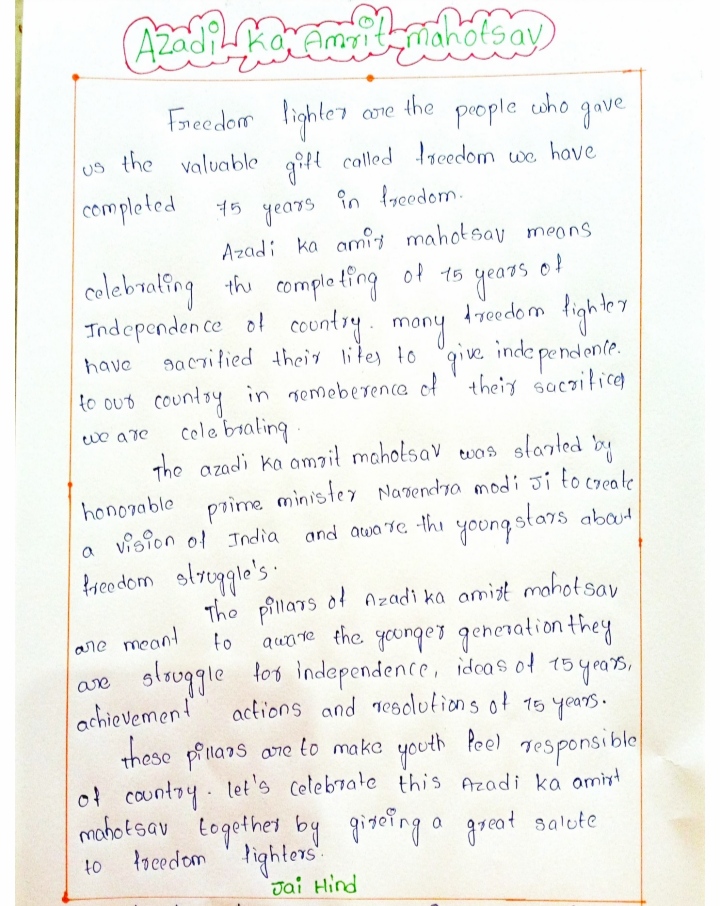 Azadi Ka Amrit mahotsav
Freedom fighter are the people who gave
us the valuable gift called freedom we have
completed 75 years in freedom.
Azadi ka amir mahotsav means
celebrating the completing of 75 years of
Independence of country. many freedom fighter
have sacrified their lifes to give independence.
to our country in remeberence of their sacrifices
we are celebrating.
The azadi Ka amrit mahotsav was started by
honorable prime minister Narendra modi Ji to create
a vision of India and aware the youngstars about
freedom struggle's.
The pillars of Azadi ka amirt mahotsav
are meant to aware the younger generation they
are struggle for independence, ideas of 75 years,
achievement actions and resolutions of 75 years.
these pillars are to make youth feel responsible
of country. let's celebrate this Azadi ka amirt
mahotsav together by giveing a great salute
to freedom fighters.
Jai Hind